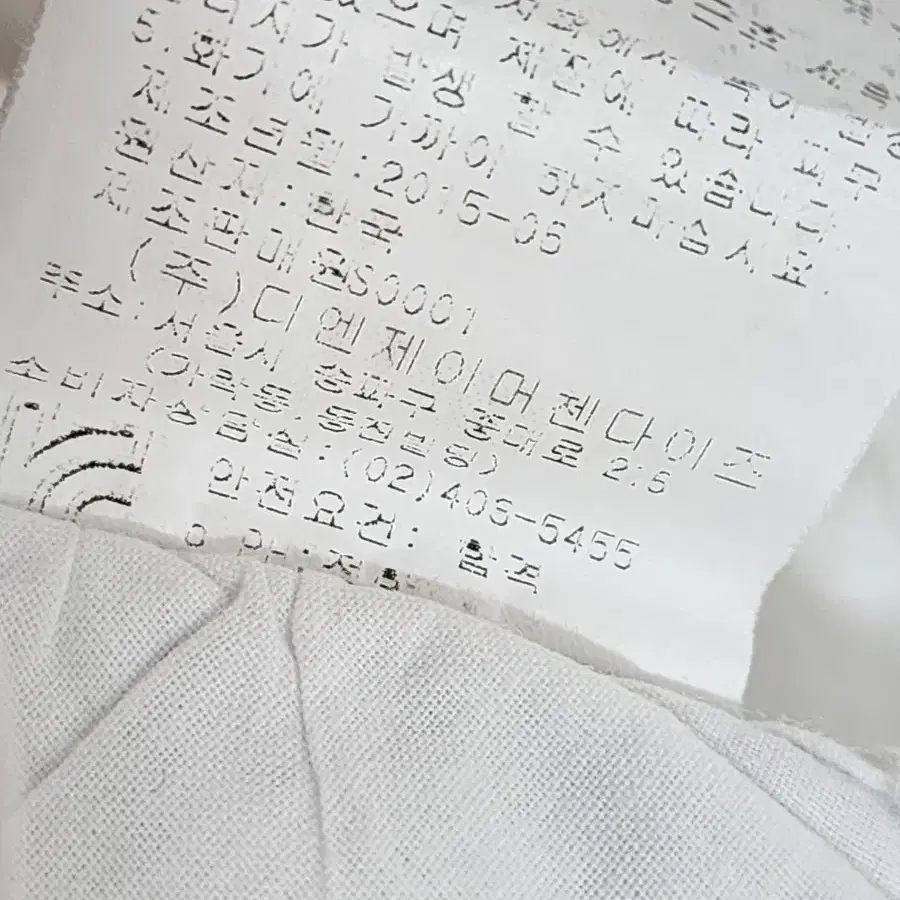 있으며 재질에 따라 피부
가 발생 할 수 있습니다.
5. 화기에 가까이 하지 마십시요.
제조년월:2015-05
원산지:한국
제조판매원S0001
(주)디엔제이머첸다이즈
주소:서울시 송파구 중대로
(가락동,동진빌딩)
소비자상담실:(02)406-5455
안전요건: 합격